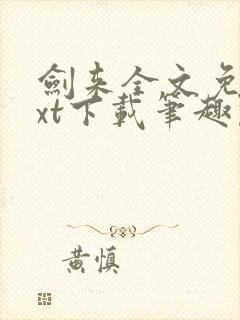 劍来全文免
xt下載筆趣
黄慎